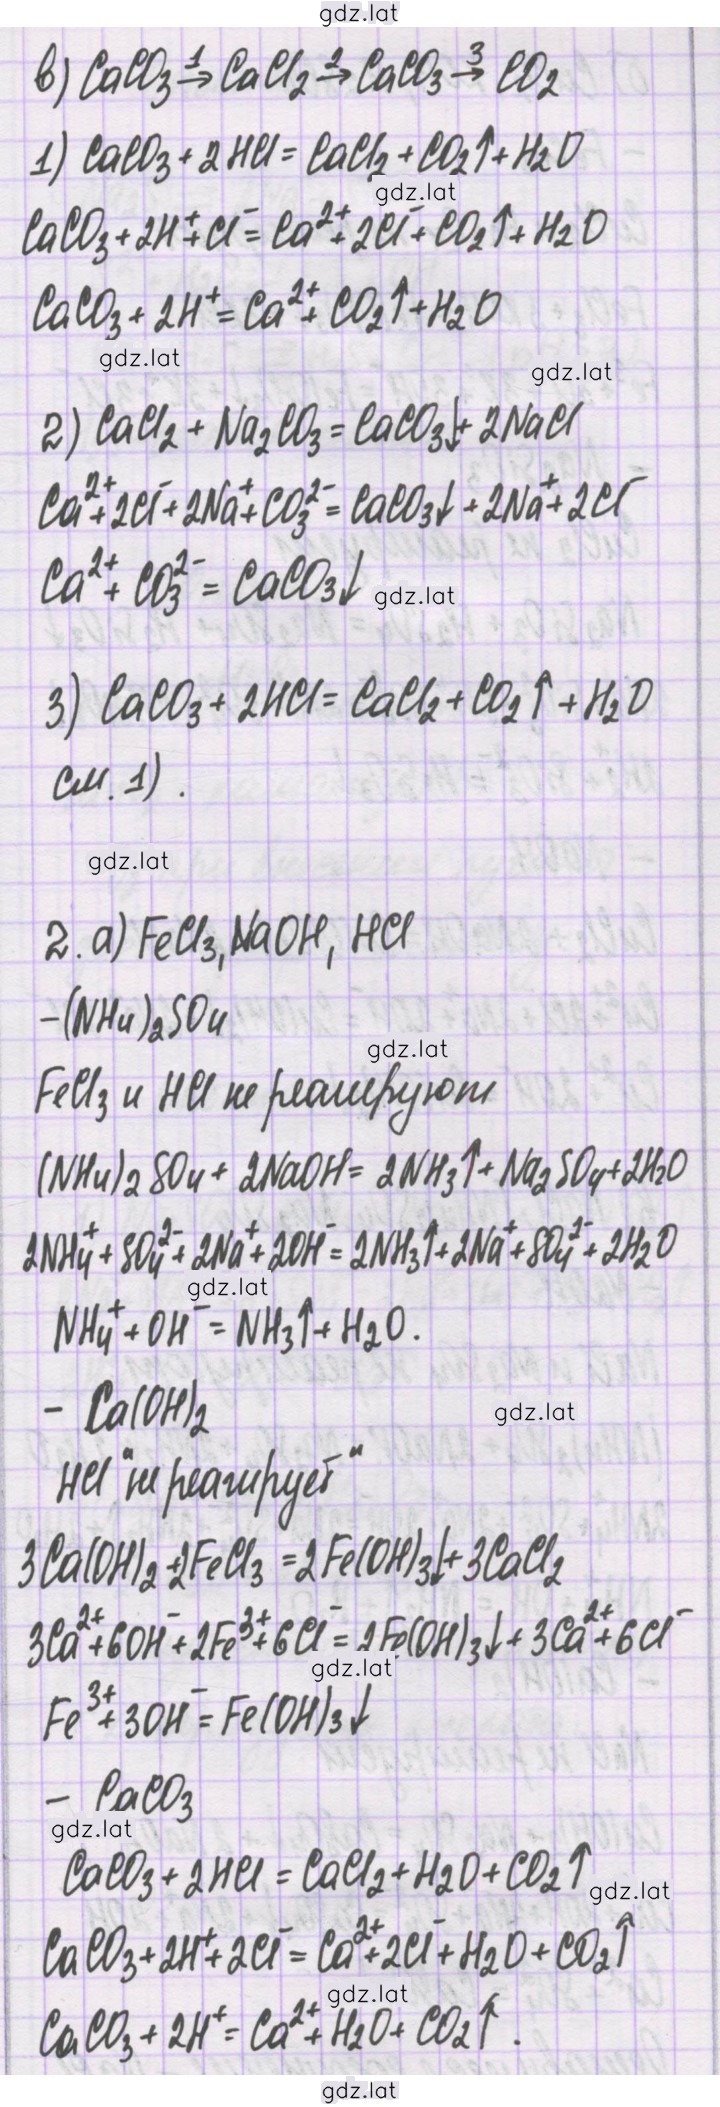 gdz.lat
в) CaCO₃ →¹ CaCl₂ →² CaCO₃ →³ CO₂
1) CaCO₃ + 2HCl = CaCl₂ + CO₂↑ + H₂O
gdz.lat
CaCO₃ + 2H⁺ + Cl⁻ = Ca²⁺ + 2Cl⁻ + CO₂↑ + H₂O
CaCO₃ + 2H⁺ = Ca²⁺ + CO₂↑ + H₂O
gdz.lat
gdz.lat
2) CaCl₂ + Na₂CO₃ = CaCO₃↓ + 2NaCl
Ca²⁺ + 2Cl⁻ + 2Na⁺ + CO₃²⁻ = CaCO₃↓ + 2Na⁺ + 2Cl⁻
Ca²⁺ + CO₃²⁻ = CaCO₃↓
gdz.lat
3) CaCO₃ + 2HCl = CaCl₂ + CO₂↑ + H₂O
см. 1).
gdz.lat
2. а) FeCl₃, NaOH, HCl
– (NH₄)₂SO₄
gdz.lat
FeCl₃ и HCl не реагируют
(NH₄)₂SO₄ + 2NaOH = 2NH₃↑ + Na₂SO₄ + 2H₂O
2NH₄⁺ + SO₄²⁻ + 2Na⁺ + 2OH⁻ = 2NH₃↑ + 2Na⁺ + SO₄²⁻ + 2H₂O
gdz.lat
NH₄⁺ + OH⁻ = NH₃↑ + H₂O.
– Ca(OH)₂
gdz.lat
HCl "не реагирует"
3Ca(OH)₂ + 2FeCl₃ = 2Fe(OH)₃↓ + 3CaCl₂
3Ca²⁺ + 6OH⁻ + 2Fe³⁺ + 6Cl⁻ = 2Fe(OH)₃↓ + 3Ca²⁺ + 6Cl⁻
gdz.lat
Fe³⁺ + 3OH⁻ = Fe(OH)₃↓
– CaCO₃
gdz.lat
CaCO₃ + 2HCl = CaCl₂ + H₂O + CO₂↑
gdz.lat
CaCO₃ + 2H⁺ + 2Cl⁻ = Ca²⁺ + 2Cl⁻ + H₂O + CO₂↑
gdz.lat
CaCO₃ + 2H⁺ = Ca²⁺ + H₂O + CO₂↑.
gdz.lat